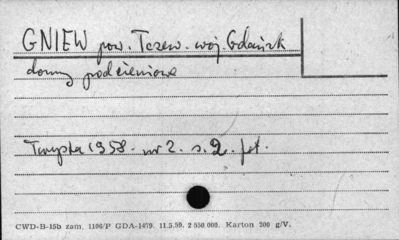 GNIEW pow. Tczew. woj. Gdańsk
domy podcieniowe
1958. nr 2. s. 2. fot.
CWD-B-15b zam. 1106/P GDA-1479. 11.5.59. 2 550 000. Karton 200 g/V.